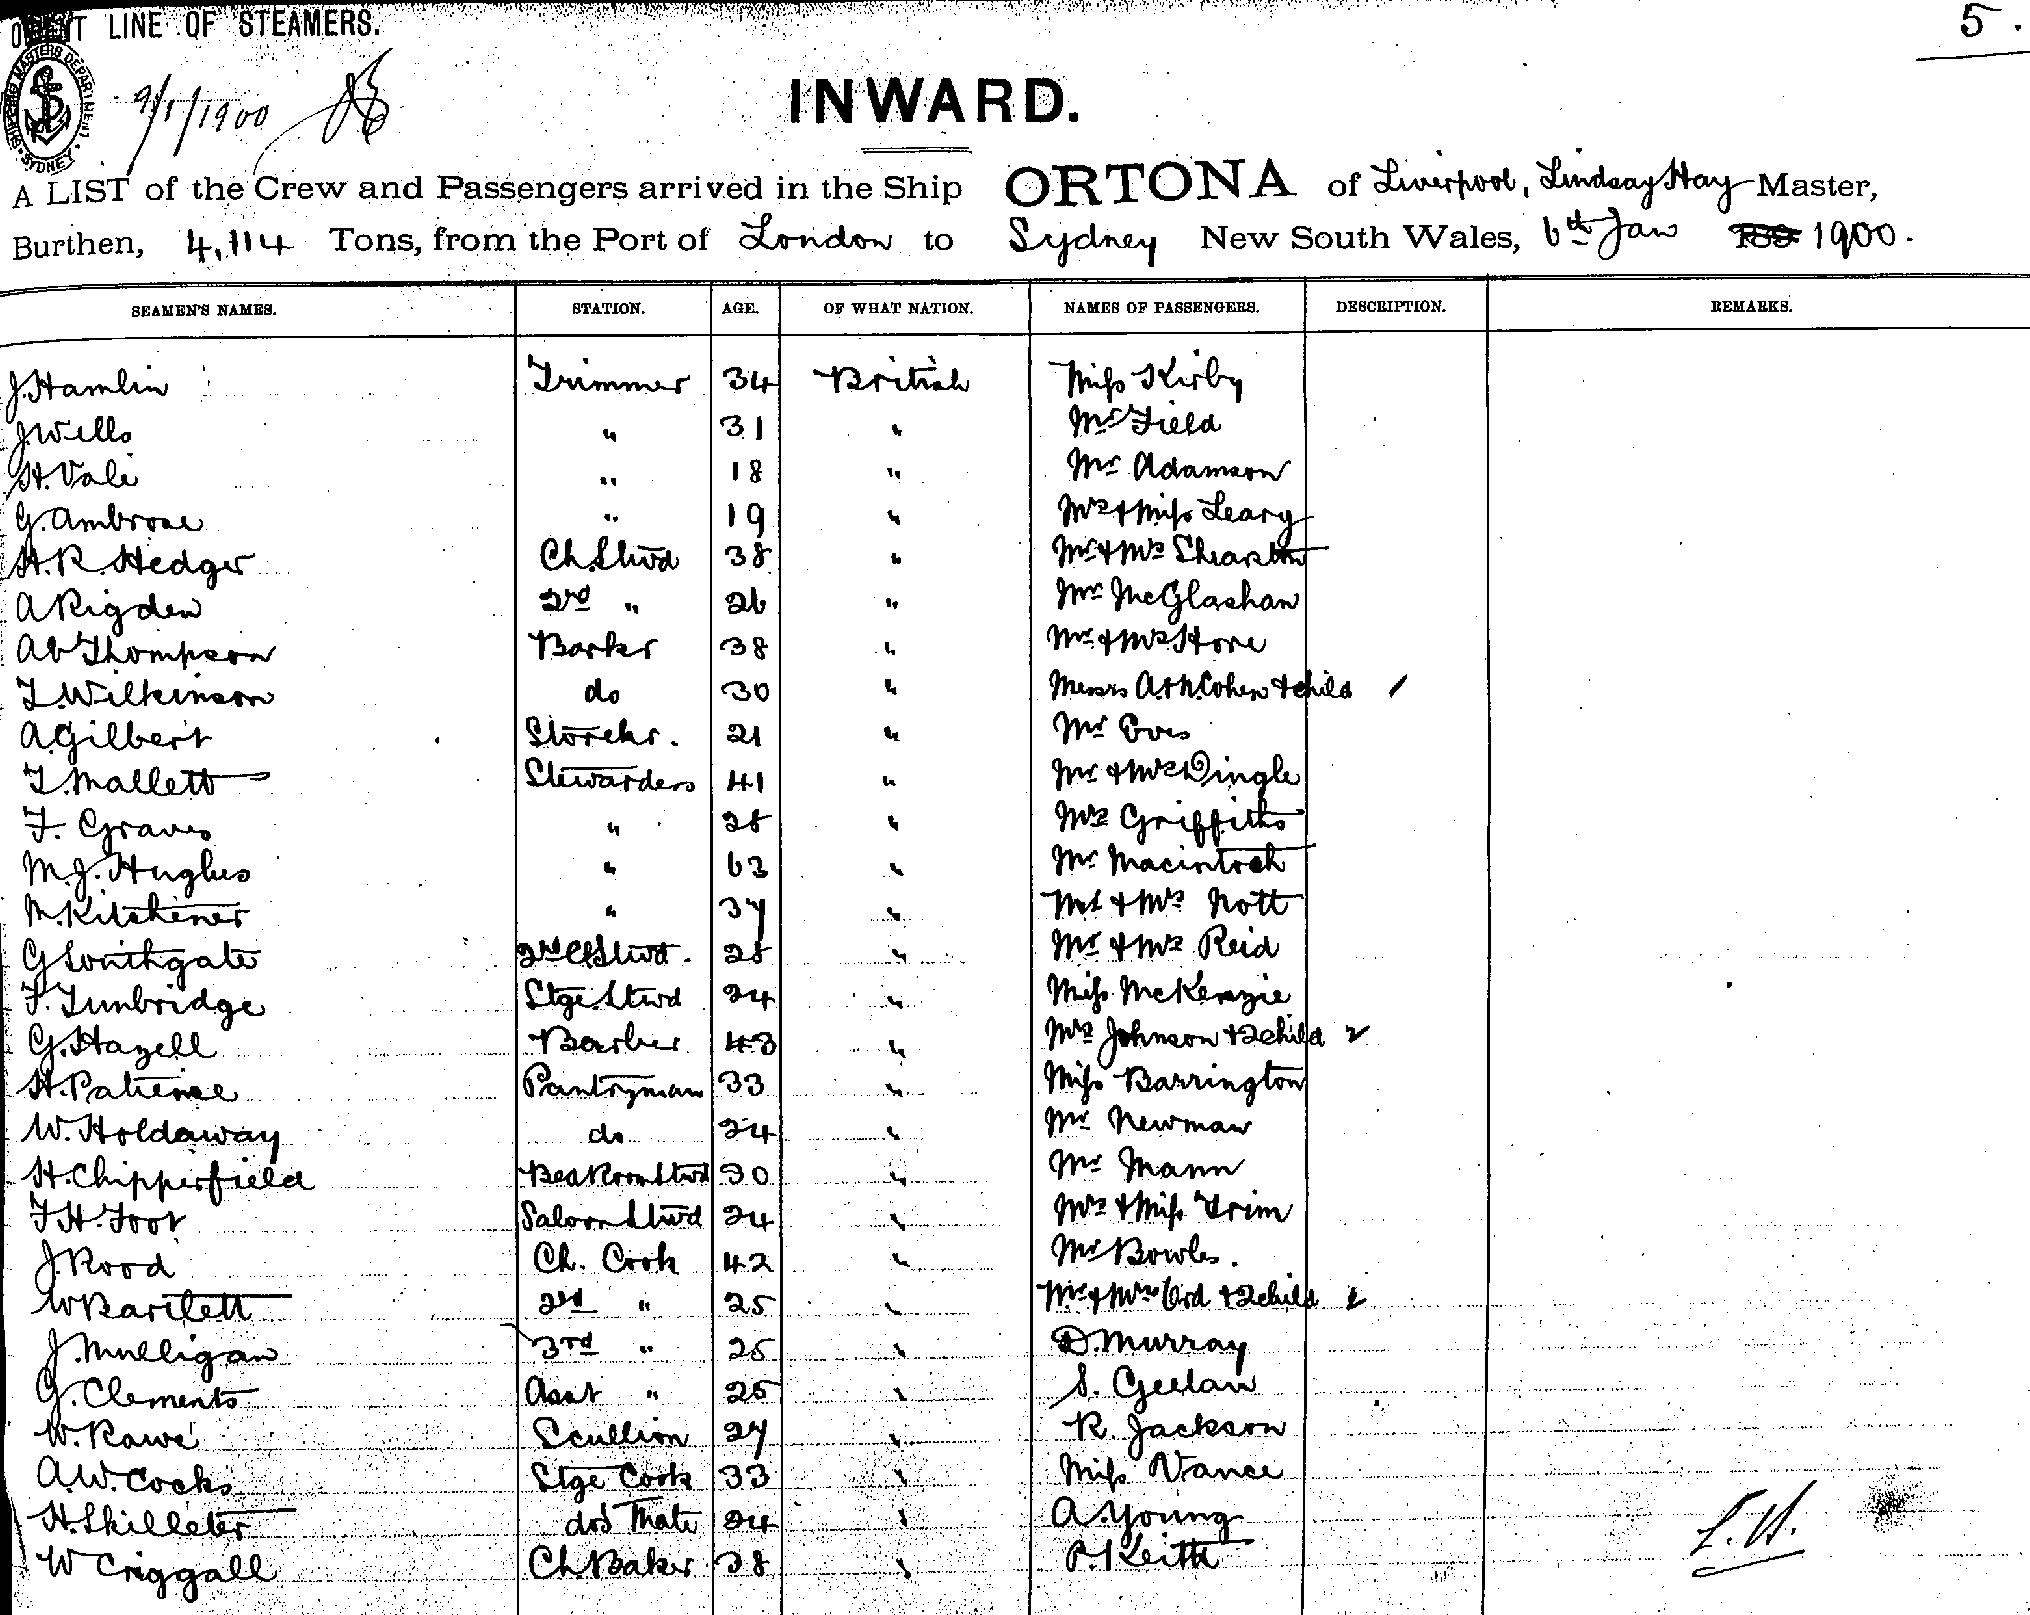 ORIENT LINE OF STEAMERS.
5.
SHIPPING MASTERS DEPARTMENT SYDNEY
9/1/1900
INWARD.
A LIST of the Crew and Passengers arrived in the Ship ORTONA of Liverpool, Lindsay Hay Master,
Burthen, 4,114 Tons, from the Port of London to Sydney New South Wales, 6th Jan 1900.
SEAMEN'S NAMES. STATION. AGE. OF WHAT NATION. NAMES OF PASSENGERS. DESCRIPTION. REMARKS.
J. Hamlin Trimmer 34 British Miss Kirby
J Wells " 31 " Mr Field
H. Vale " 18 " Mr Adamson
G. Ambrose " 19 " Mrs & Miss Leary
H. R. Hedger Ch. Stwd 38 " Mr & Mrs Shearston
A Rigden 2nd " 26 " Mr McGlashan
Ab Thompson Barkr 38 " Mr & Mrs Hore
T. Wilkinson do 30 " Messrs A. & N. Cohen & child 1
A. Gilbert Storekr. 21 " Mr Eves
T. Mallett Stewardess 41 " Mr & Mrs Dingle
F. Graves " 28 " Mrs Griffiths
M. J. Hughes " 63 " Mr Macintosh
M. Kitchener " 37 " Mr & Mrs Nott
G Southgate 2nd Cl Stwd. 28 " Mr & Mrs Reid
F. Tunbridge Stge. Stwd 24 " Miss McKenzie
G. Hazell Barber 43 " Mrs Johnson & 2 child 2
H. Patience Pantryman 33 " Miss Barrington
W. Holdaway do 24 " Mr Newman
H. Chipperfield Bed Room Stwd 30 " Mr Mann
T. H. Foot Saloon Stwd 24 " Mrs & Miss Trim
J. Rood Ch. Cook 42 " Mr Bowles.
W Bartlett 2nd " 25 " Mr & Mrs Ord & 2 child 2
J. Mulligan 3rd " 25 " D. Murray
G. Clements Asst " 25 " S. Geelan
W. Rawe Scullion 27 " R. Jackson
A. W. Cocks Stge Cook 33 " Miss Vance
H. Skilleter dos Mate 24 " A. Young
W Criggall Ch. Baker 38 " P. Keith
L. H.